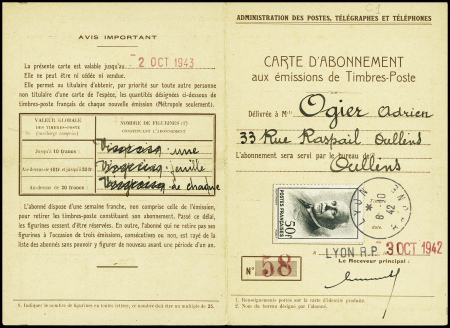 AVIS IMPORTANT
La présente carte est valable jusqu'au 2 OCT 1943
Elle ne peut être ni cédée ni vendue.
Elle permet au titulaire d'obtenir, par priorité sur toute autre personne
non titulaire d'une carte de l'espèce, les quantités désignées ci-dessous de
timbres-poste français de chaque nouvelle émission (Métropole seulement).
VALEUR GLOBALE
DES TIMBRES-POSTE
NOMBRE DE FIGURINES (1)
CONSTITUANT L'ABONNEMENT
Jusqu'à 10 francs
une
feuille
Au-dessus de 20 francs
de chaque
L'abonné dispose d'une semaine franche, non comprise celle de l'émission,
pour retirer les timbres-poste constituant son abonnement. Passé ce délai,
les figurines cessent d'être réservées. En outre, l'abonné qui ne retire pas ses
figurines à l'occasion de trois émissions, consécutives ou non, est rayé de la
liste des abonnés sans pouvoir y figurer de nouveau avant une période d'un an.
1. Indiquer le nombre de figurines en toutes lettres, ce nombre doit être un multiple de 25.
ADMINISTRATION DES POSTES, TÉLÉGRAPHES ET TÉLÉPHONES
CARTE D'ABONNEMENT
aux émissions de Timbres-Poste
Délivrée à M Ogier Adrien
33 Rue Raspail Oullins
L'abonnement sera servi par le bureau de
Oullins
POSTES FRANÇAISES
50F
LYON
8-10
42
LYON R.P. 3 OCT 1942
Le Receveur principal :
N° 58
1. Renseignements portés sur la carte d'identité produite.
2. Nom du bureau désigné par l'abonné.